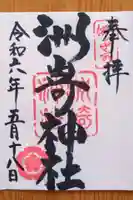 奉拝
洲崎神社
令和六年五月十八日